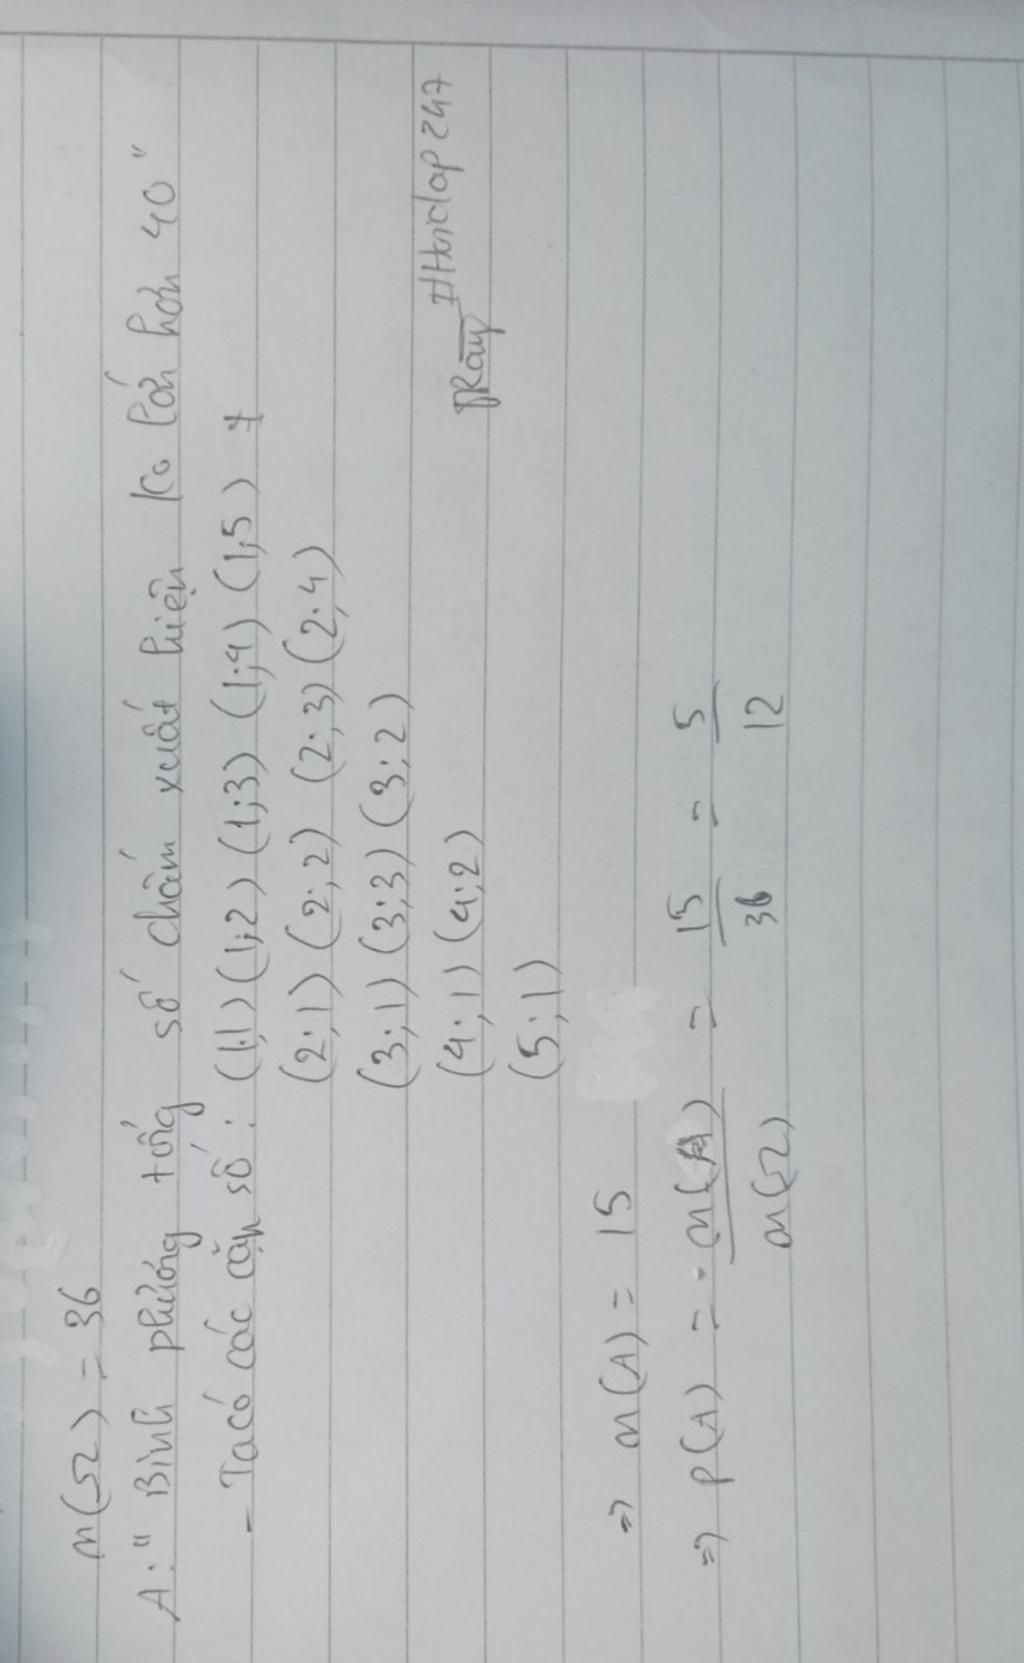 n(Ω) = 36
A: " Bình phương tổng số chấm xuất hiện ko lớn hơn 40 "
- Ta có các cặp số : (1;1) (1;2) (1;3) (1;4) (1;5)
(2;1) (2;2) (2;3) (2;4)
(3;1) (3;3) (3;2)
(4;1) (4;2)
(5;1)
#Hoidap247
⇒ n(A) = 15
⇒ P(A) = n(A)/n(Ω) = 15/36 = 5/12